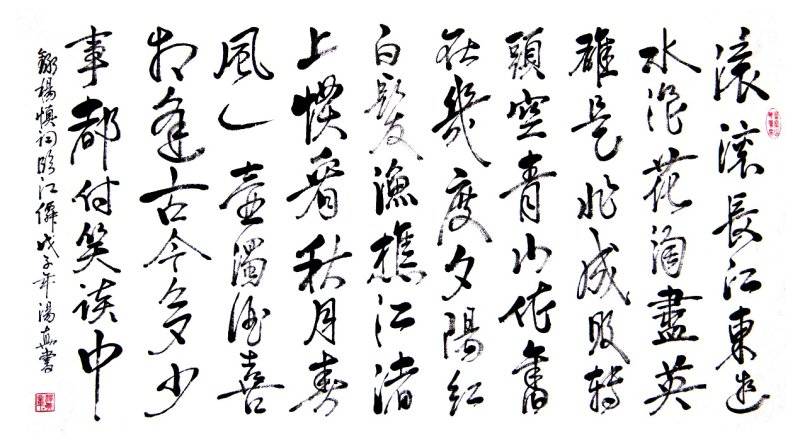 滚滚長江東逝
水浪花淘盡英
雄是非成敗轉
頭空青山依舊
在幾度夕陽紅
白髮漁樵江渚
上慣看秋月春
風一壺濁酒喜
相逢古今多少
事都付笑談中
錄楊慎詞臨江僊戊子年湯書